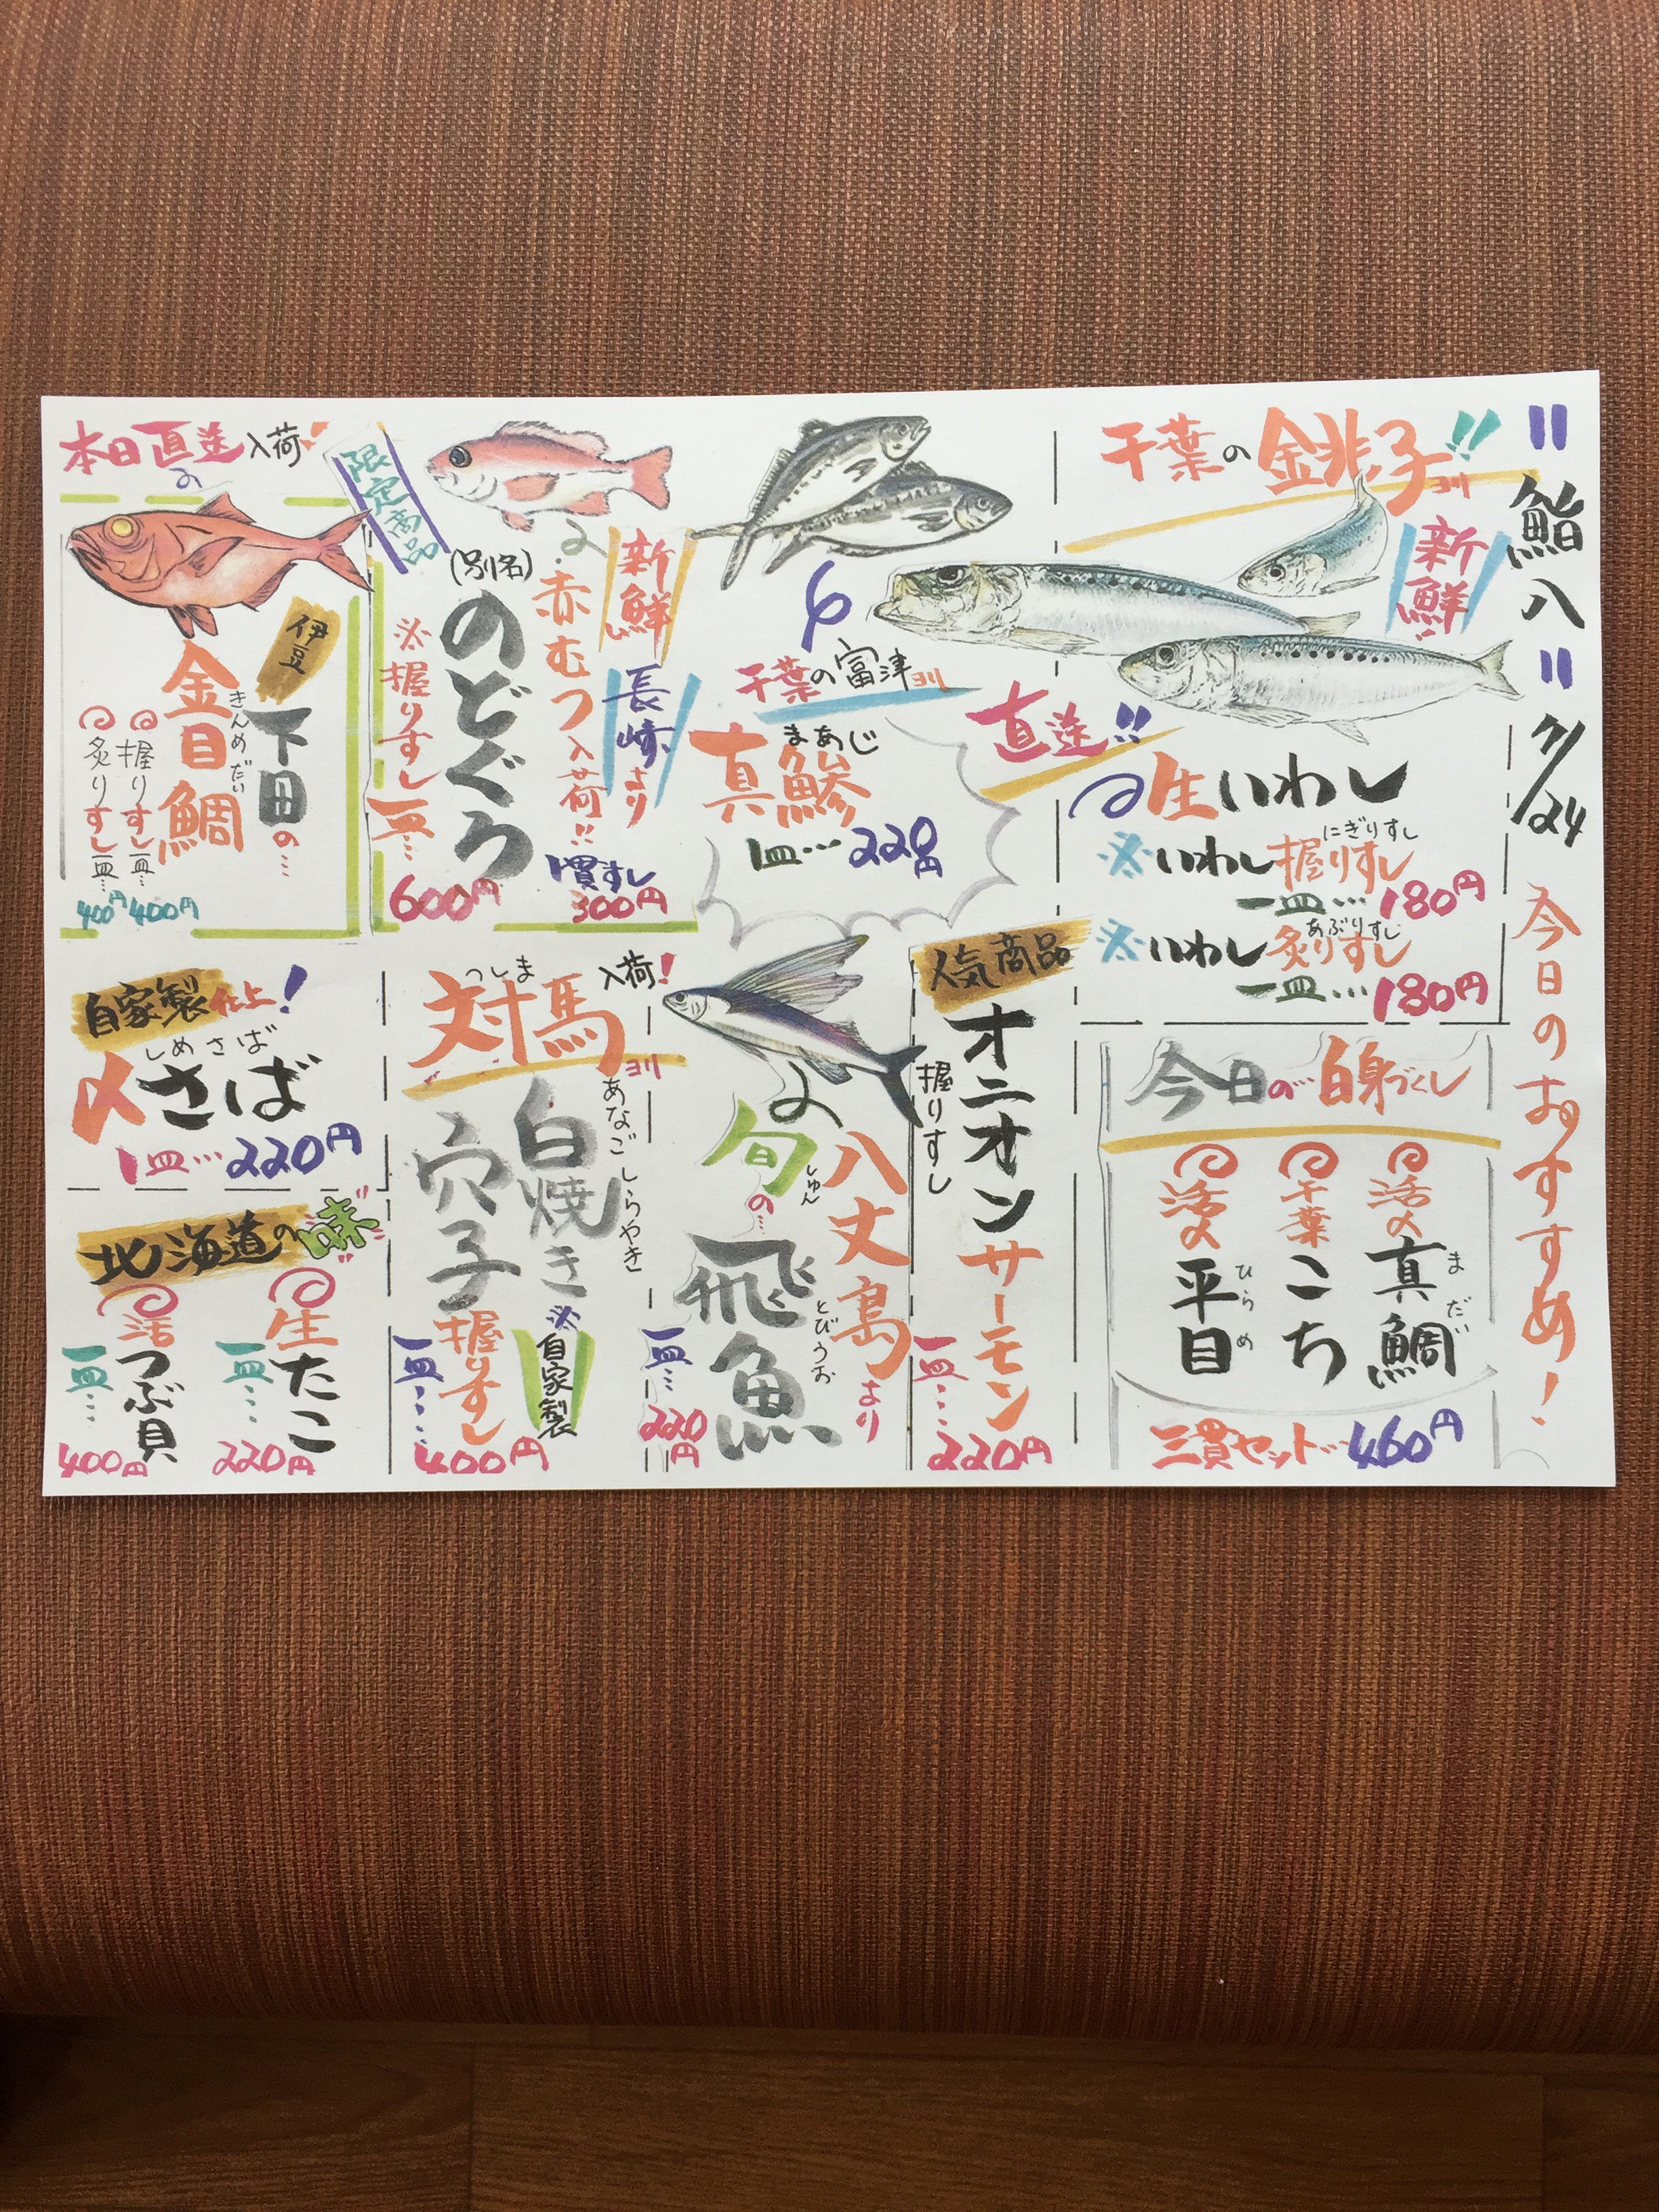 "鮨八" 7/24 今日のおすすめ!
千葉の金兆子ヨリ!!
新鮮
直送!!
生いわし
※いわし握りすし
にぎりすし
一皿…180円
※いわし炙りすし
あぶりすし
一皿…180円
今日の…白身づくし
活〆真鯛
まだい
千葉こち
活〆平目
ひらめ
三貫セット…460円
千葉の富津ヨリ
真鯵
まあじ
1皿…220円
限定商品
新鮮
長崎より
赤むつ入荷!!
(別名)
のどぐろ
1貫すし
300円
※握りすし一皿…
600円
本日直送入荷!
伊豆
下田の…
金目鯛
きんめだい
握りすし一皿…
400円
炙りすし一皿…
400円
人気商品
オニオンサーモン
握りすし
一皿…
220円
八丈島より
旬の…
しゅん
飛魚
とびうお
一皿…
220円
対馬ヨリ
つしま
入荷!
白焼き
穴子
あなごしらやき
※自家製
握りすし
一皿…
400円
自家製仕上!
〆さば
しめさば
1皿…220円
北海道の味
生たこ
一皿…
220円
活つぶ貝
一皿…
400円